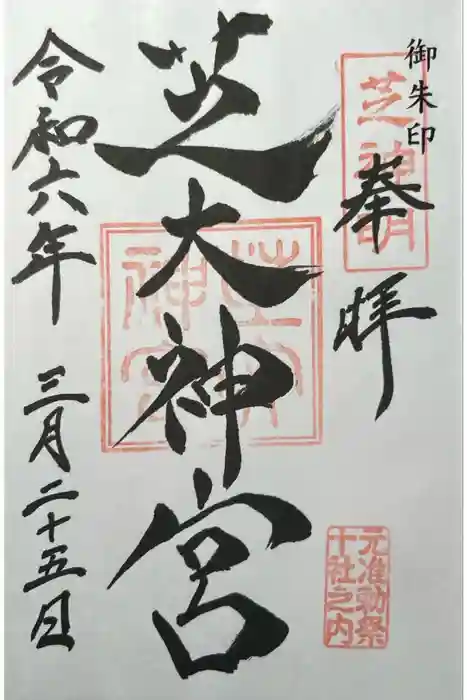 御朱印
芝神明
奉拝
芝大神宮
元准勅祭
十社之内
令和六年 三月二十五日